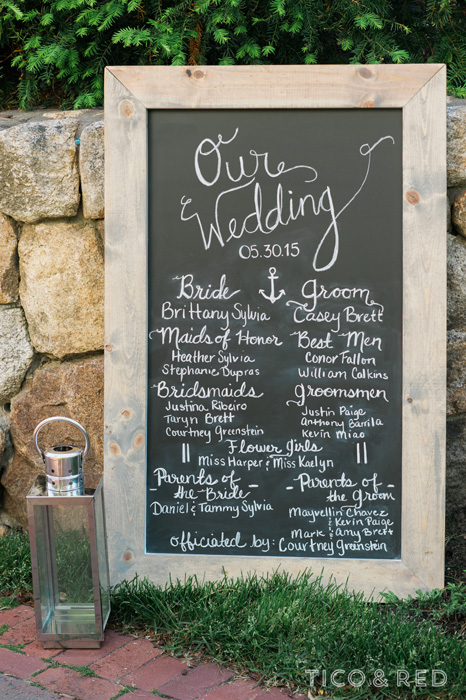 Our
Wedding
05.30.15
Bride
Groom
Brittany Sylvia
Casey Brett
Maids of Honor
Best Men
Heather Sylvia
Conor Fallon
Stephanie Dupras
William Calkins
Bridsmaids
Groomsmen
Justina Ribeiro
Justin Paige
Taryn Brett
Anthony Barrila
Courtney Greenstein
Kevin Miao
Flower Girls
Miss Harper & Miss Kaelyn
Parents of
the Bride
Parents of
the Groom
Daniel & Tammy Sylvia
Mayvellin Chavez
& Kevin Paige
Mark & Amy Brett
officiated by: Courtney Greinstein
TICO & RED